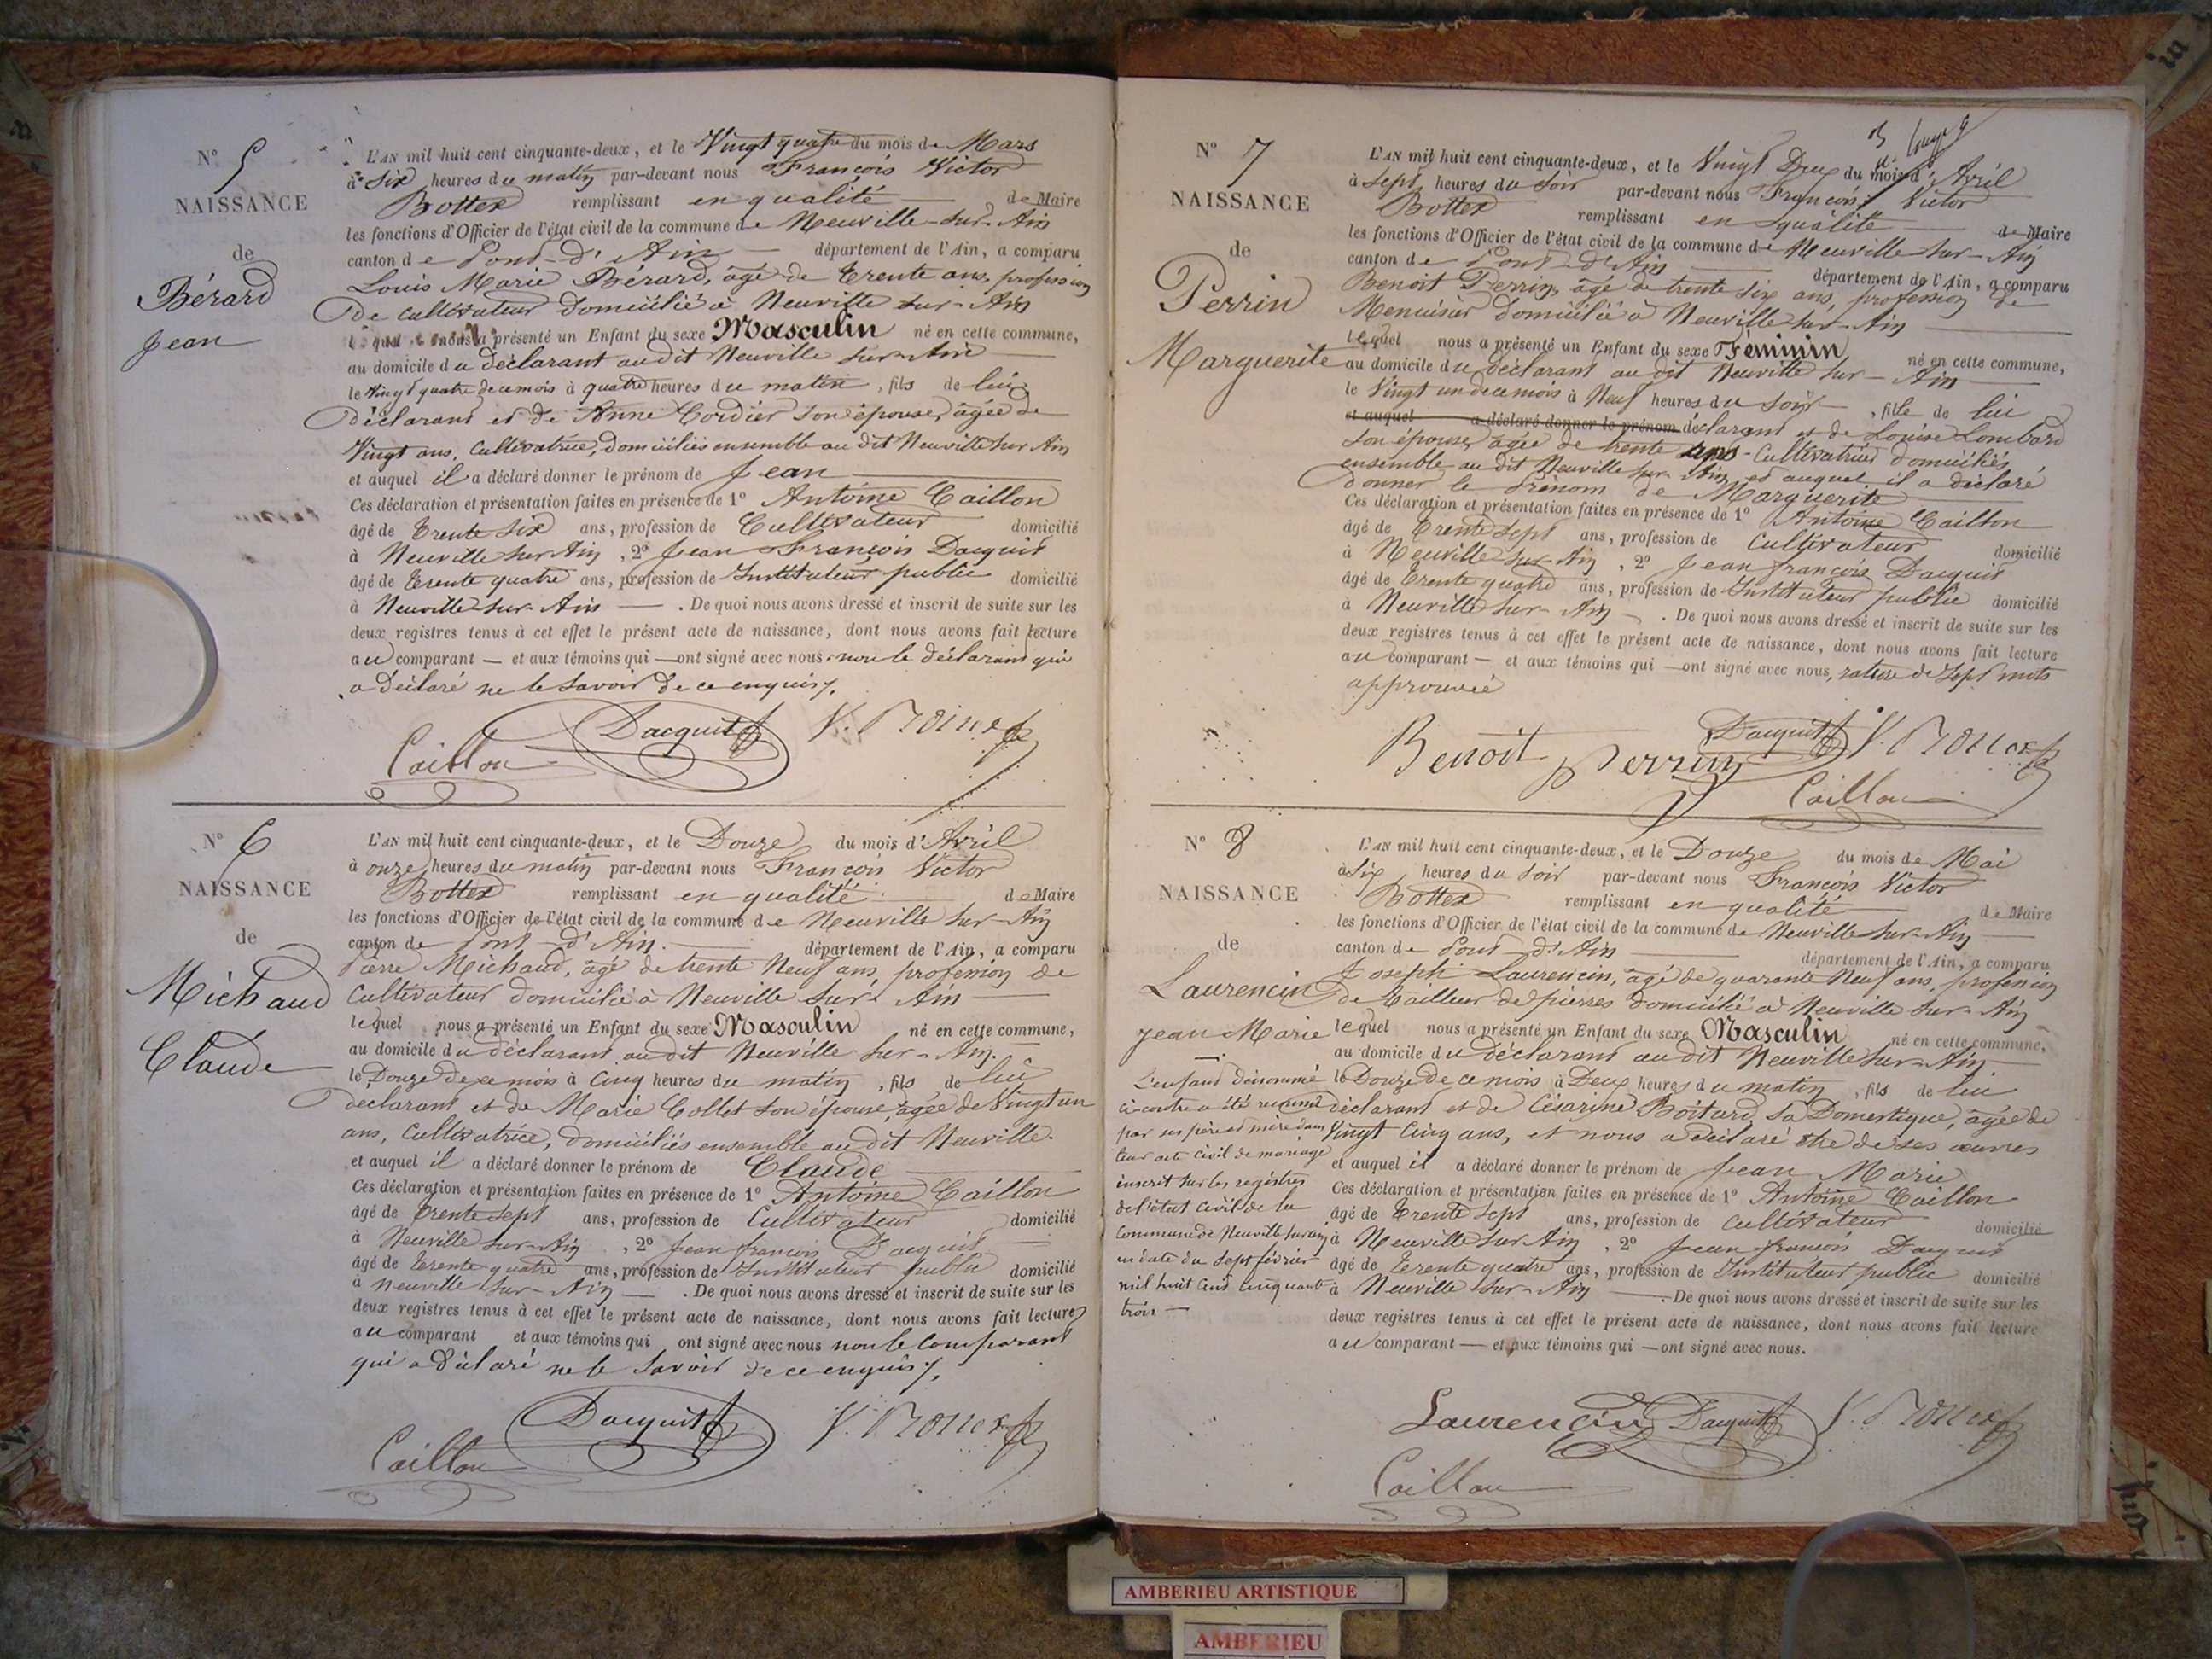 N° 5
NAISSANCE
de
Bérard
Jean
L'AN mil huit cent cinquante-deux, et le Vingt quatre du mois de Mars
à Six heures du matin par-devant nous François Victor
Bottex remplissant en qualité de Maire
les fonctions d'Officier de l'état civil de la commune de Neuville-sur-Ain
canton de Pont-d'Ain département de l'Ain, a comparu
Louis Marie Bérard, âgé de trente ans, profession
de cultivateur domicilié à Neuville sur-Ain
lequel nous a présenté un Enfant du sexe Masculin né en cette commune,
au domicile du déclarant audit Neuville sur-Ain
le vingt quatre de ce mois à quatre heures du matin, fils de lui
déclarant et de Anne Cordier son épouse, âgée de
Vingt ans, Cultivatrice, domiciliés ensemble au dit Neuville sur Ain
et auquel il a déclaré donner le prénom de Jean
Ces déclaration et présentation faites en présence de 1° Antoine Caillon
âgé de trente six ans, profession de Cultivateur domicilié
à Neuville sur Ain, 2° Jean François Dacquit
âgé de trente quatre ans, profession de Instituteur public domicilié
à Neuville sur-Ain — . De quoi nous avons dressé et inscrit de suite sur les
deux registres tenus à cet effet le présent acte de naissance, dont nous avons fait lecture
au comparant — et aux témoins qui — ont signé avec nous non le déclarant qui
a déclaré ne le savoir de ce enquis.
Caillon Dacquit V. Bottex
N° 6
NAISSANCE
de
Michaud
Claude
L'AN mil huit cent cinquante-deux, et le Douze du mois d'Avril
à onze heures du matin par-devant nous François Victor
Bottex remplissant en qualité de Maire
les fonctions d'Officier de l'état civil de la commune de Neuville sur-Ain
canton de Pont-d'Ain. département de l'Ain, a comparu
Pierre Michaud, âgé de trente Neuf ans, profession de
Cultivateur domicilié à Neuville sur Ain
lequel nous a présenté un Enfant du sexe Masculin né en cette commune,
au domicile du déclarant audit Neuville sur-Ain.
le Douze de ce mois à Cinq heures du matin, fils de lui
déclarant et de Marie Collet son épouse, âgée de Vingt un
ans, Cultivatrice, domiciliés ensemble au dit Neuville.
et auquel il a déclaré donner le prénom de Claude
Ces déclaration et présentation faites en présence de 1° Antoine Caillon
âgé de trente sept ans, profession de Cultivateur domicilié
à Neuville sur-Ain, 2° Jean françois Dacquit
âgé de trente quatre ans, profession de Instituteur public domicilié
à Neuville sur-Ain — . De quoi nous avons dressé et inscrit de suite sur les
deux registres tenus à cet effet le présent acte de naissance, dont nous avons fait lecture
au comparant et aux témoins qui ont signé avec nous non le Comparant
qui a déclaré ne le savoir de ce enquis.
Caillon Dacquit V. Bottex
N° 7
NAISSANCE
de
Perrin
Marguerite
L'AN mil huit cent cinquante-deux, et le Vingt Deux du mois d'Avril
à Sept heures du Soir par-devant nous François Victor
Bottex remplissant en qualité de Maire
les fonctions d'Officier de l'état civil de la commune de Neuville sur-Ain
canton de Pont-d'Ain département de l'Ain, a comparu
Benoit Perrin, âgé de trente six ans, profession de
Menuisier domicilié à Neuville sur-Ain
lequel nous a présenté un Enfant du sexe Féminin né en cette commune,
au domicile du déclarant au dit Neuville sur-Ain
le Vingt un de ce mois à Neuf heures du Soir, fille de lui
et auquel a déclaré donner le prénom déclarant et de Louise Lombard
son épouse, âgée de trente ans Cultivatrice, domiciliés
ensemble au dit Neuville sur-Ain, et auquel il a déclaré
donner le prénom de Marguerite
Ces déclaration et présentation faites en présence de 1° Antoine Caillon
âgé de trente sept ans, profession de Cultivateur domicilié
à Neuville sur-Ain, 2° Jean françois Dacquit
âgé de trente quatre ans, profession de Instituteur public domicilié
à Neuville sur-Ain — . De quoi nous avons dressé et inscrit de suite sur les
deux registres tenus à cet effet le présent acte de naissance, dont nous avons fait lecture
au comparant — et aux témoins qui — ont signé avec nous, rature de Sept mots
approuvée
Benoit Perrin Dacquit V. Bottex
Caillon
N° 8
NAISSANCE
de
Laurencin
Jean Marie
L'enfant dénommé
ci-contre a été reconnu
par ses père et mère dans
leur acte civil de mariage
inscrit sur les registres
de l'état civil de la
Commune de Neuville sur ain
en date du Sept février
mil huit cent cinquante
trois —
L'AN mil huit cent cinquante-deux, et le Douze du mois de Mai
à Six heures du Soir par-devant nous François Victor
Bottex remplissant en qualité de Maire
les fonctions d'Officier de l'état civil de la commune de Neuville sur-Ain
canton de Pont-d'Ain département de l'Ain, a comparu
Joseph Laurencin, âgé de quarante Neuf ans, profession
de Tailleur de pierres domicilié à Neuville sur-Ain
lequel nous a présenté un Enfant du sexe Masculin né en cette commune,
au domicile du déclarant au dit Neuville sur-Ain
le Douze de ce mois à Deux heures du matin, fils de lui
déclarant et de Césarine Boitard, sa Domestique, âgée de
Vingt Cinq ans, et nous a déclaré être de ses œuvres
et auquel il a déclaré donner le prénom de Jean Marie
Ces déclaration et présentation faites en présence de 1° Antoine Caillon
âgé de trente sept ans, profession de Cultivateur domicilié
à Neuville sur Ain, 2° Jean-françois Dacquit
âgé de trente quatre ans, profession de Instituteur public domicilié
à Neuville sur-Ain — . De quoi nous avons dressé et inscrit de suite sur les
deux registres tenus à cet effet le présent acte de naissance, dont nous avons fait lecture
au comparant — et aux témoins qui — ont signé avec nous.
Laurencin Dacquit V. Bottex
Caillon
AMBERIEU ARTISTIQUE
AMBERIEU